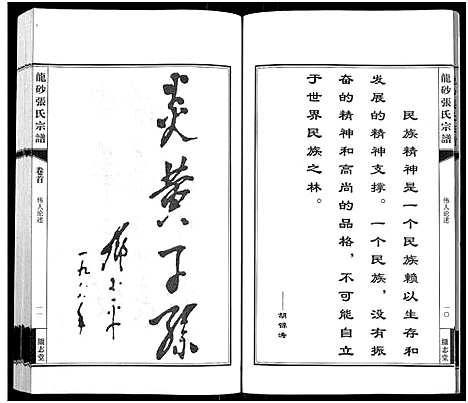 龍砂張氏宗譜
伟人论述
一〇
民族精神是一个民族赖以生存和
发展的精神支撑。一个民族，没有振
奋的精神和高尚的品格，不可能自立
于世界民族之林。
——胡锦涛
龍砂張氏宗譜
卷首
伟人论述
一一
炎黄子孫
鄧小平
一九八八年